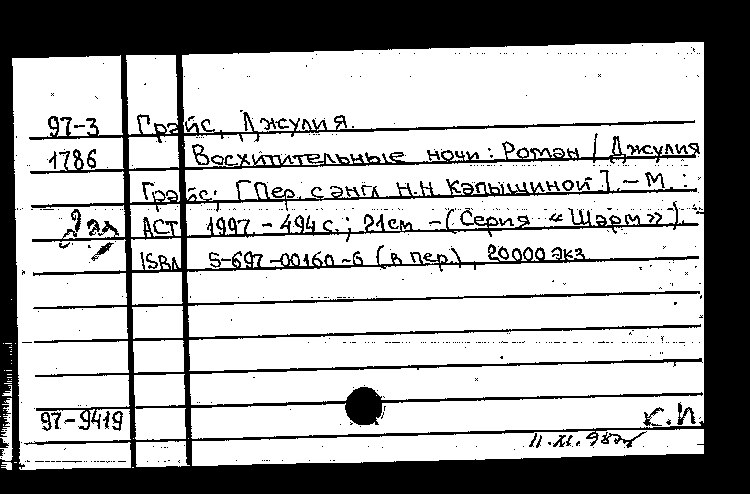 97-3 Грэйс, Джулия.
1786 Восхитительные ночи: Роман / Джулия
Грэйс; [Пер. с англ Н.Н. Капышиной]. – М. :
2 экз АСТ 1997. – 494 с.; 21 см – (Серия «Шарм»). –
ISBN 5-697-00160-6 (в пер.), 20000 экз
97-9419
К.И.
11.XI.98г